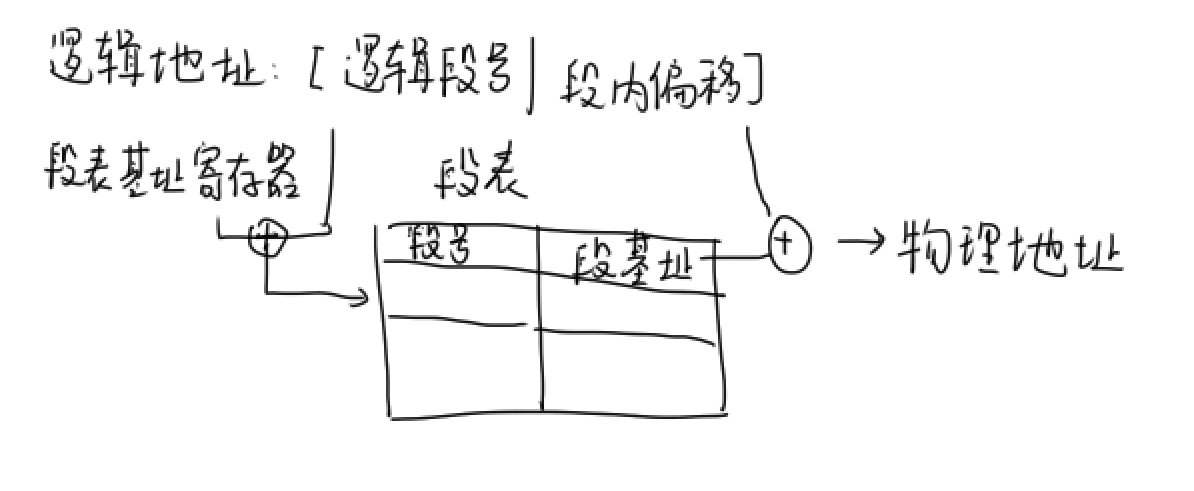 逻辑地址: [逻辑段号|段内偏移]
段表基址寄存器
段表
段号 段基址
+
+ → 物理地址